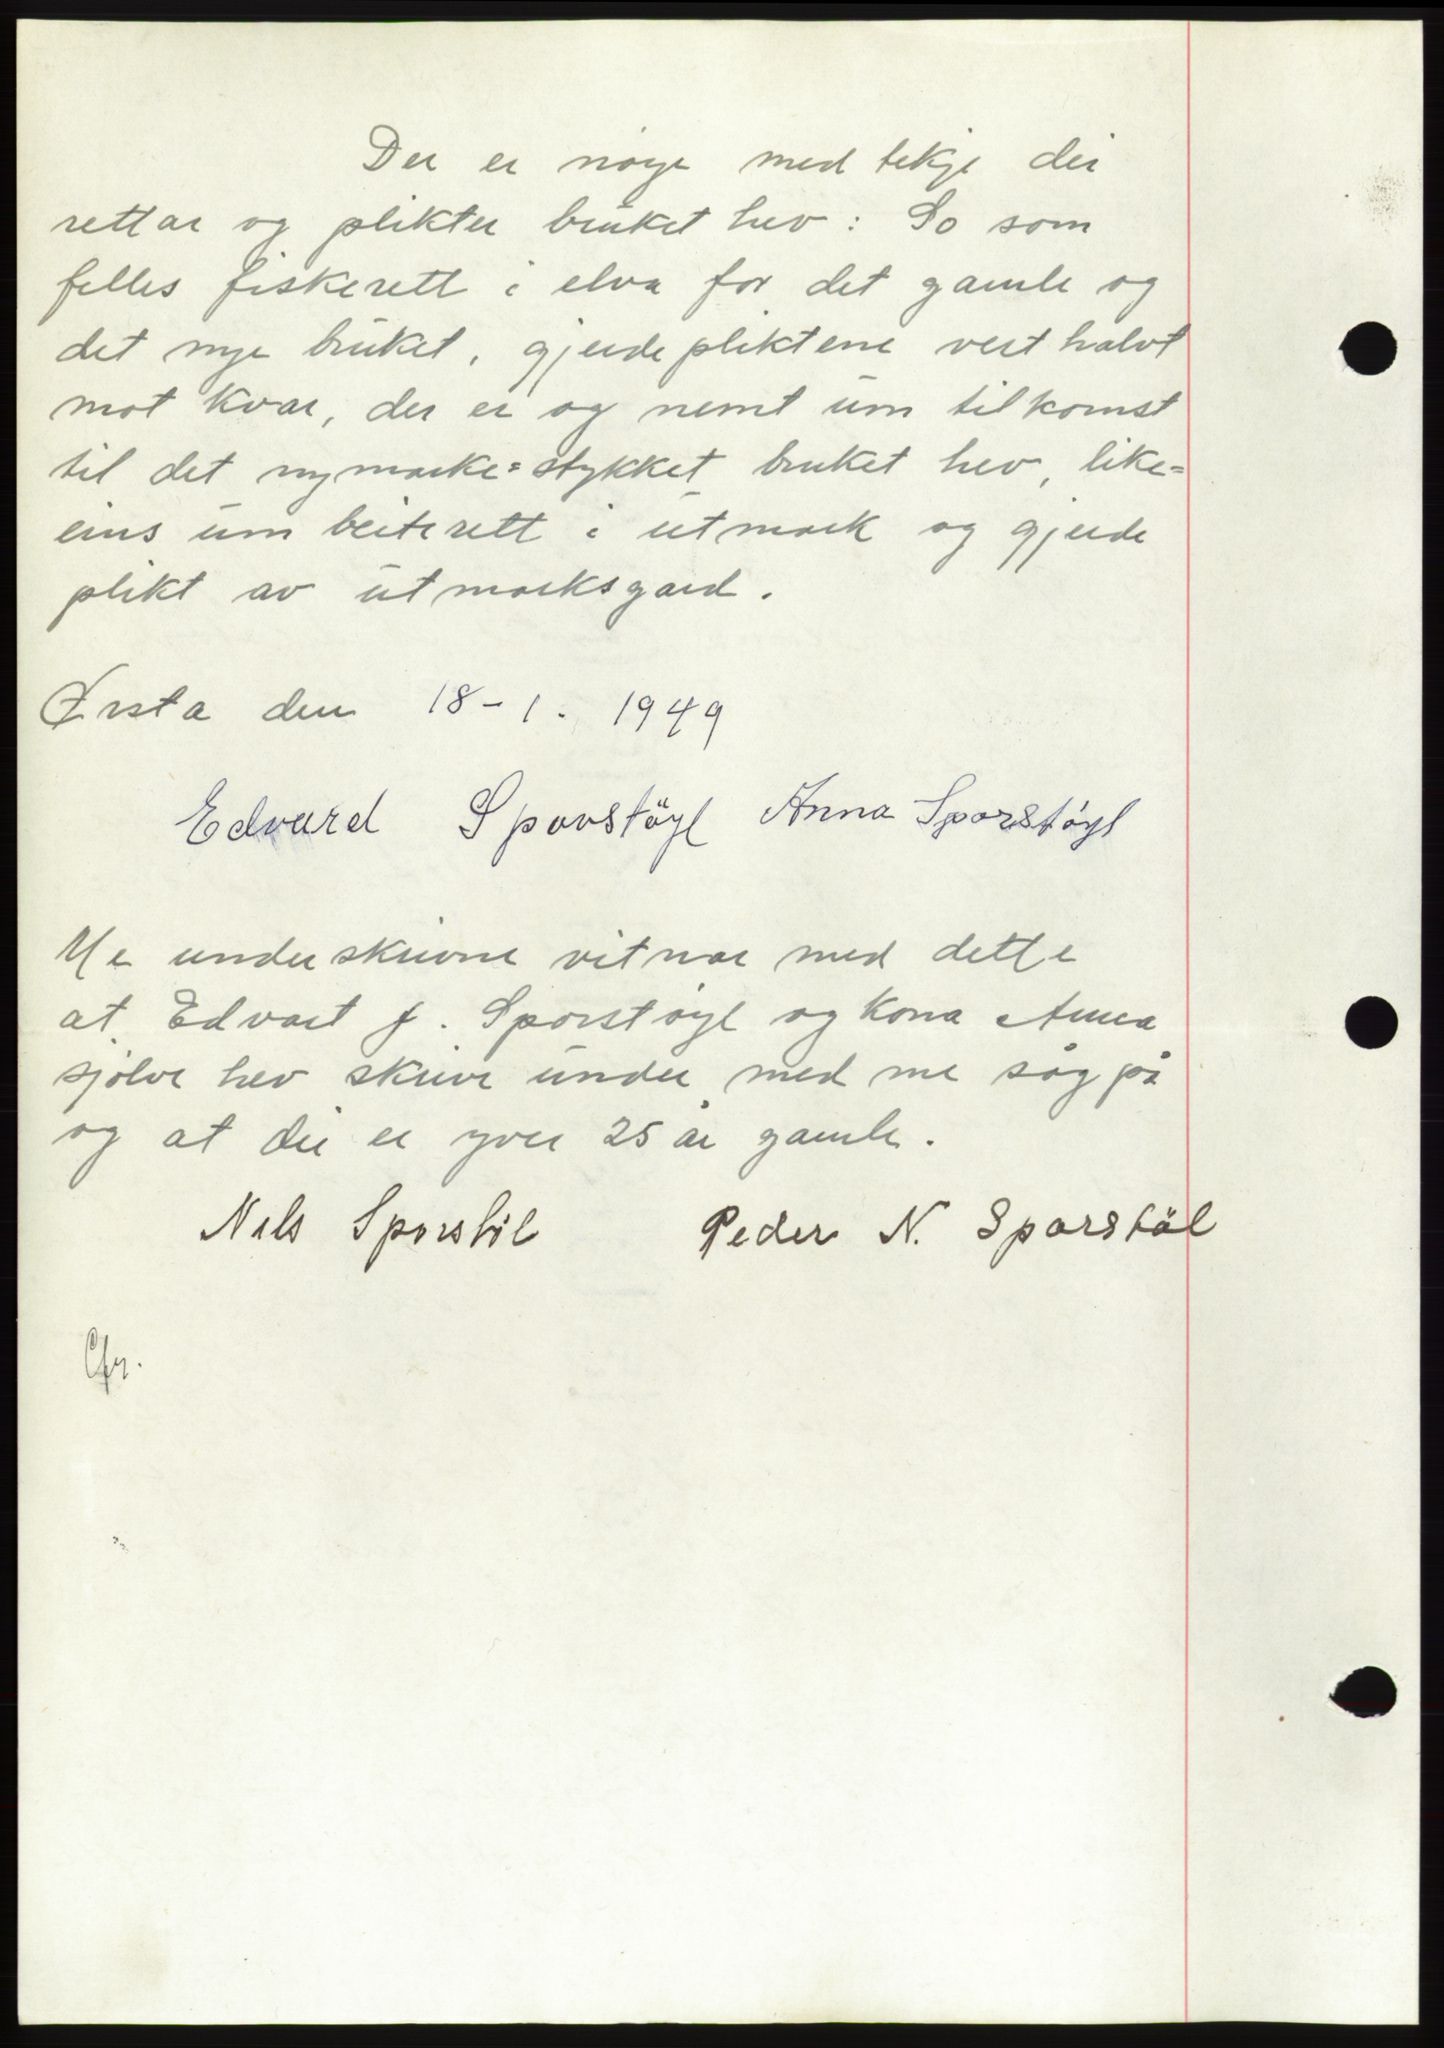 Der er nøye med tekje dei
rettar og plikter bruket hev: So som
felles fiskerett i elva for det gamle og
det nye bruket, gjerdepliktene vert halvt
mot kvar, der er og nemt um tilkomst
til det nymarke=stykket bruket hev, like=
eins um beiterett i utmark og gjerde
plikt av utmarksgard.
Ørsta den 18-1. 1949
Edvard Sporstöyl Anna Sporstøyl
Me underskrivne vitnar med dette
at Edvart J. Sporstøyl og kona Anna
sjølve hev skrive under med me såg på
og at dei er yver 25 år gamle.
Nils Sporstöl Peder N. Sporstöl
Cfr.